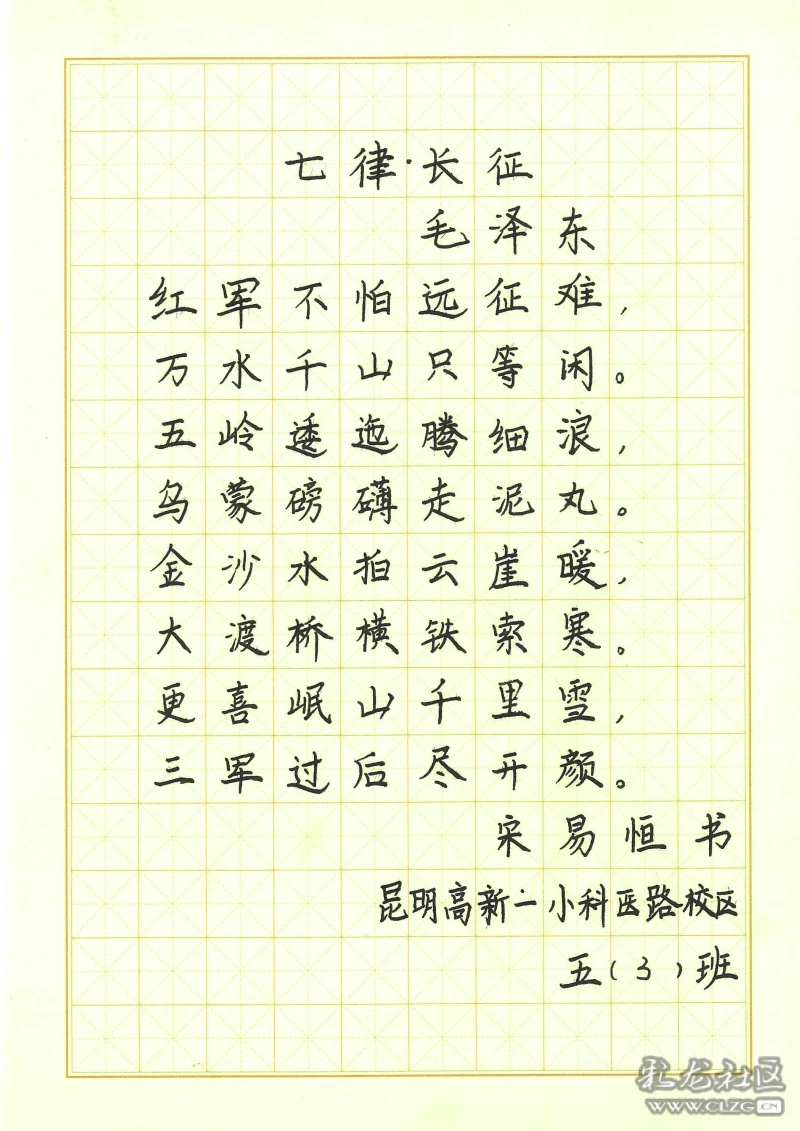 七律·长征
毛泽东
红军不怕远征难,
万水千山只等闲。
五岭逶迤腾细浪,
乌蒙磅礴走泥丸。
金沙水拍云崖暖,
大渡桥横铁索寒。
更喜岷山千里雪,
三军过后尽开颜。
宋易恒书
昆明高新一小科医路校区
五(3)班
彩龙社区
WWW.CLZG.CN